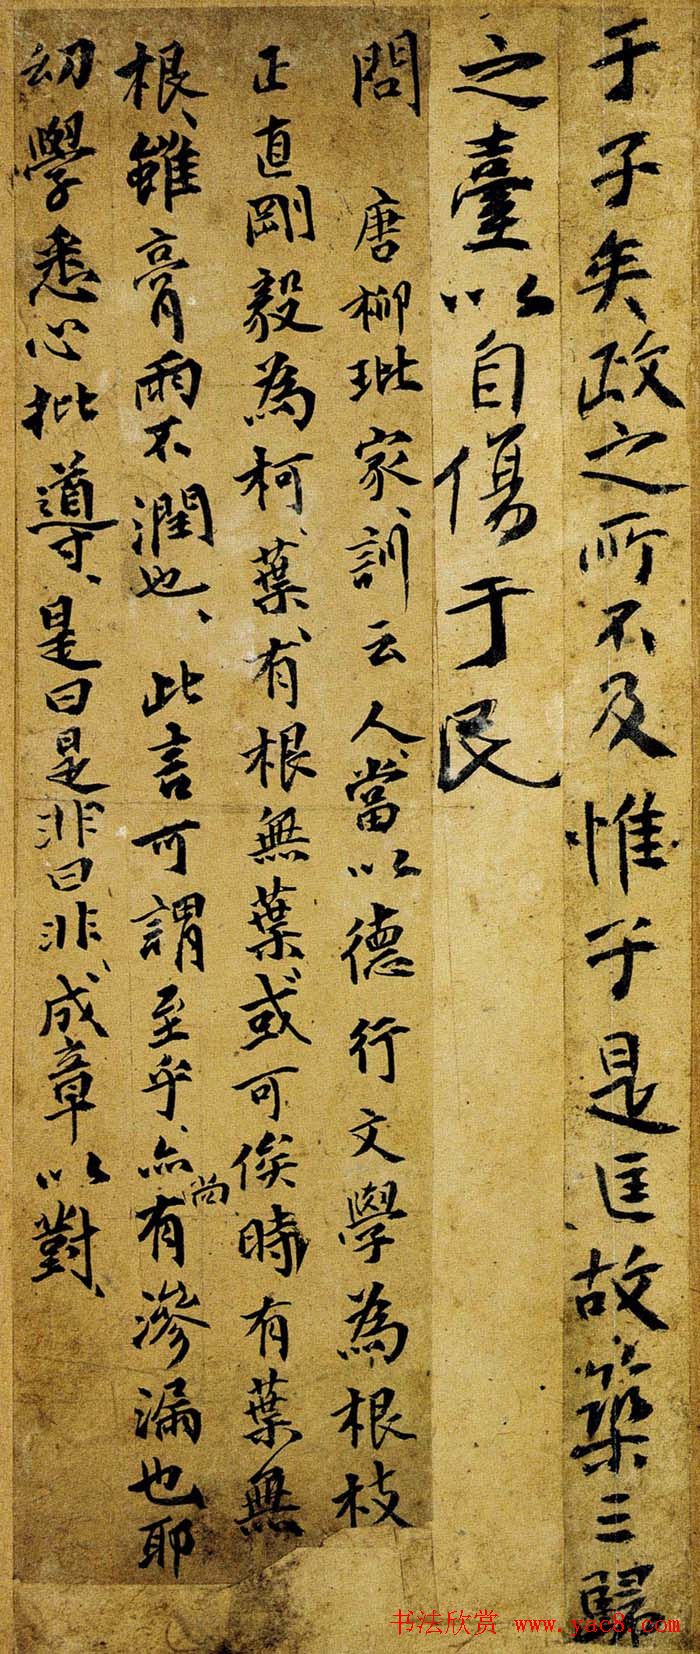 于子矣政之所不及惟子是匡故築三歸
之臺以自傷于民
問 唐柳玭家訓云人當以德行文學為根枝
正直剛毅為柯葉有根無葉或可俟時有葉無
根、雖膏雨不潤也、此言可謂至乎亦尚有滲漏也耶
幼學悉心批導、是曰是非曰非、成章以對、
书法欣赏 www.yac8.com